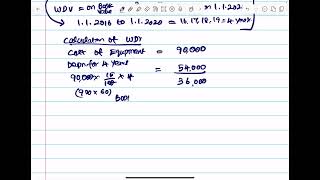 WDV = on Book value in 1.1.202
1.1.2016 to 1.1.2020 = 16,17,18,19 = 4 year
Calculation of WDV
Cost of Equipment = 90,000
Depn for 4 years = 54,000
90,000 x 15/100 x 4 36,000
(900 x 60)
Boo